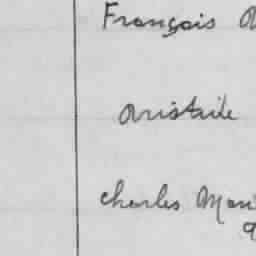 François
Aristide
Charles Mari